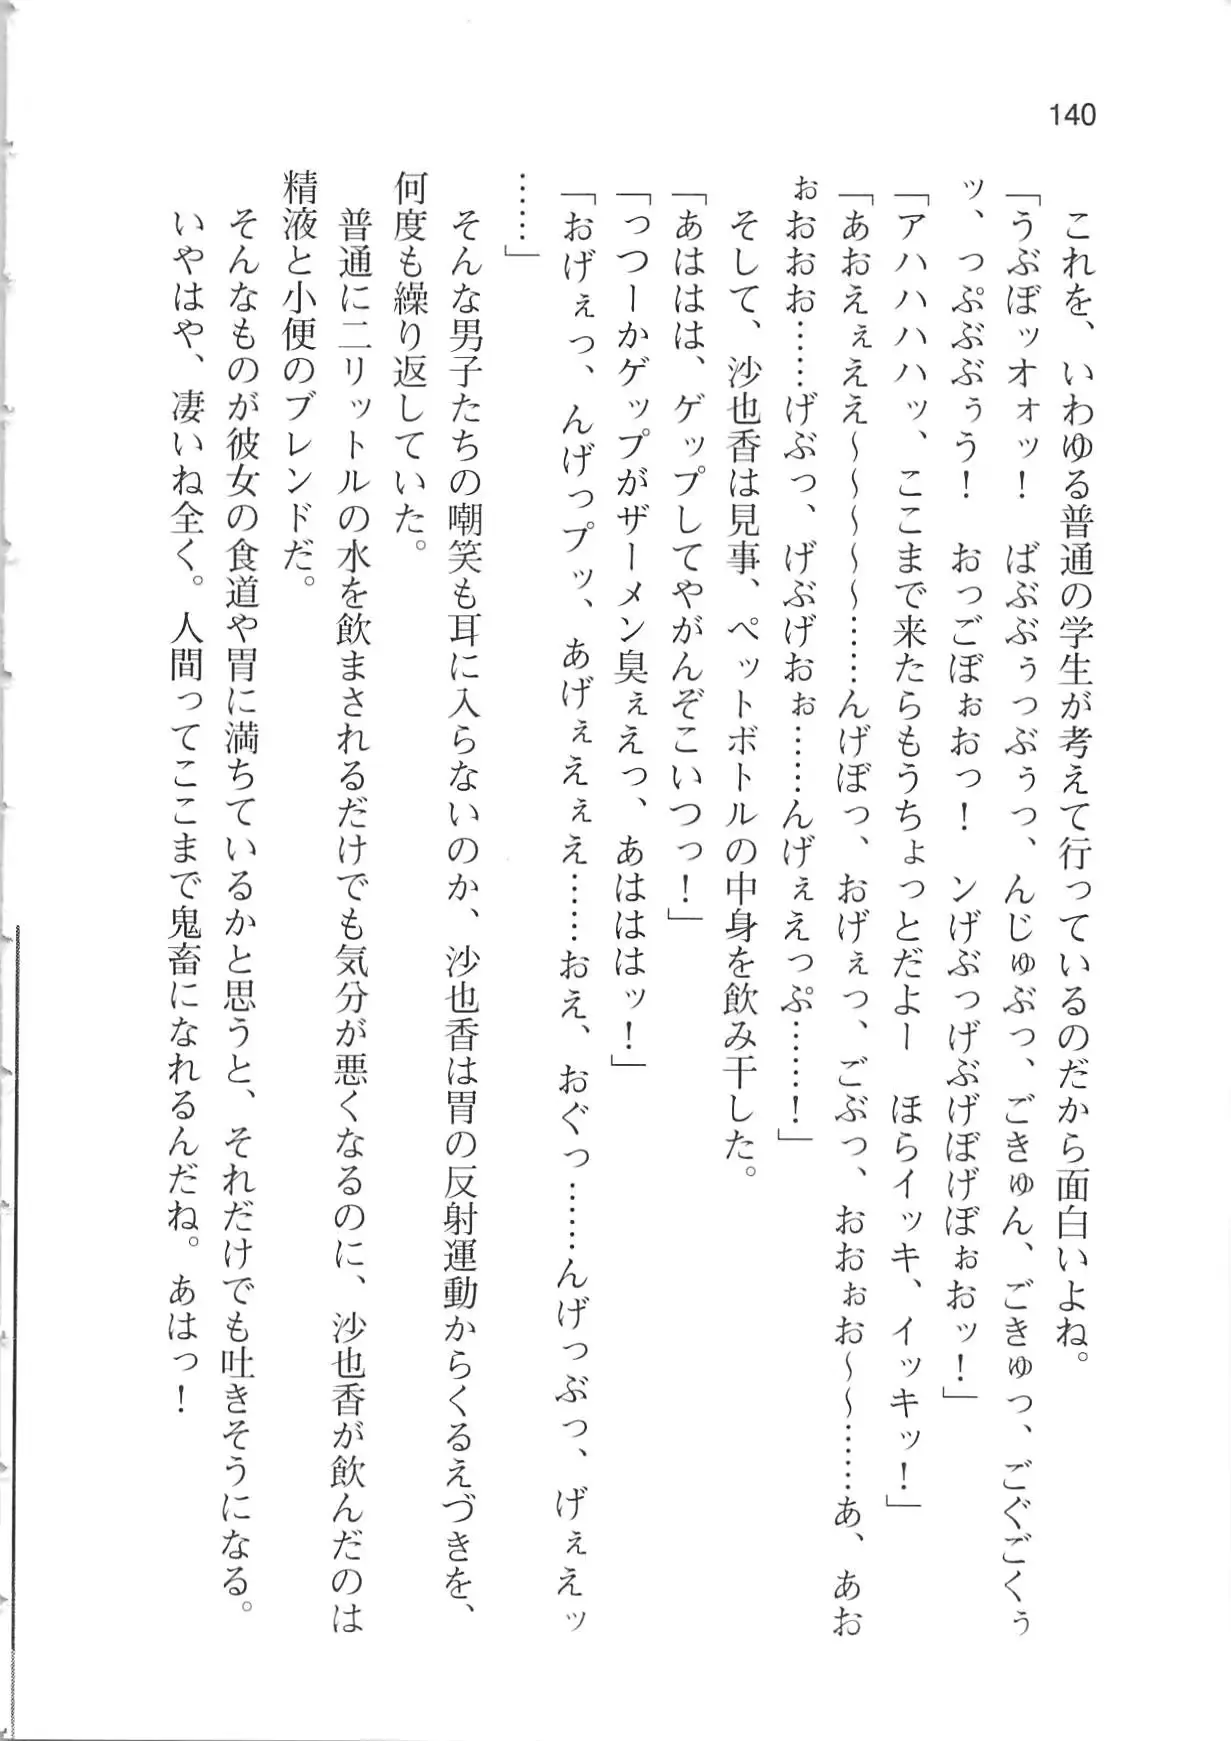 140
これを、いわゆる普通の学生が考えて行っているのだから面白いよね。
「うぶぼッオォッ！　ばぶぶぅっぶぅっ、んじゅぶっ、ごきゅん、ごきゅっ、ごぐごくぅ
ッ、っぷぶぶぅう！　おっごぼぉおっ！　ンげぶっげぶげぼげぼぉおッ！」
「アハハハハッ、ここまで来たらもうちょっとだよー　ほらイッキ、イッキッ！」
「あおえぇええ～～～～～……んげぼっ、おげぇっ、ごぶっ、おおぉお～～……あ、あお
ぉおおお……げぶっ、げぶげおぉ……んげぇえっぷ……！」
そして、沙也香は見事、ペットボトルの中身を飲み干した。
「あははは、ゲップしてやがんぞこいつっ！」
「っつーかゲップがザーメン臭ぇえっ、あはははッ！」
「おげぇっ、んげっプッ、あげぇえぇえ……おえ、おぐっ……んげっぶっ、げぇえッ
……」
そんな男子たちの嘲笑も耳に入らないのか、沙也香は胃の反射運動からくるえづきを、
何度も繰り返していた。
普通に二リットルの水を飲まされるだけでも気分が悪くなるのに、沙也香が飲んだのは
精液と小便のブレンドだ。
そんなものが彼女の食道や胃に満ちているかと思うと、それだけでも吐きそうになる。
いやはや、凄いね全く。人間ってここまで鬼畜になれるんだね。あはっ！